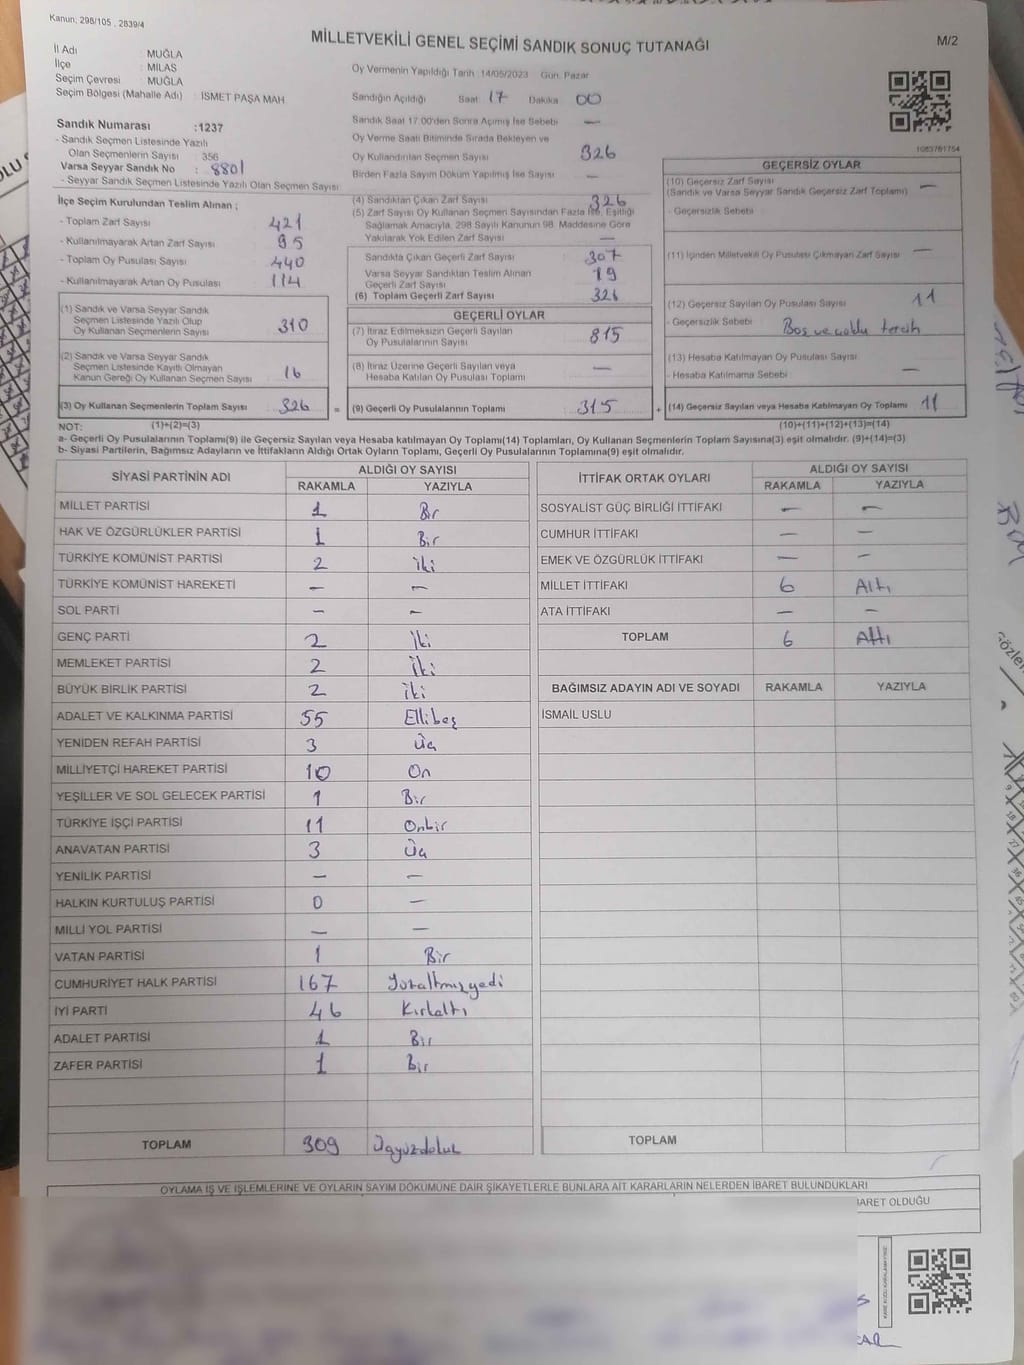 Kanun: 298/105 , 2839/4
MİLLETVEKİLİ GENEL SEÇİMİ SANDIK SONUÇ TUTANAĞI
M/2
İl Adı : MUĞLA
İlçe : MİLAS
Seçim Çevresi : MUĞLA
Seçim Bölgesi (Mahalle Adı) : İSMET PAŞA MAH.
Sandık Numarası :1237
- Sandık Seçmen Listesinde Yazılı
Olan Seçmenlerin Sayısı : 356
Varsa Seyyar Sandık No : 8801
- Seyyar Sandık Seçmen Listesinde Yazılı Olan Seçmen Sayısı
Oy Vermenin Yapıldığı Tarih :14/05/2023 Gün: Pazar
Sandığın Açıldığı Saat 17 Dakika 00
Sandık Saat 17:00'den Sonra Açımış İse Sebebi —
Oy Verme Saati Bitiminde Sırada Bekleyen ve
Oy Kullandırılan Seçmen Sayısı 326
Birden Fazla Sayım Döküm Yapılmış İse Sayısı —
1083761754
İlçe Seçim Kurulundan Teslim Alınan ;
- Toplam Zarf Sayısı 421
- Kullanılmayarak Artan Zarf Sayısı 95
- Toplam Oy Pusulası Sayısı 440
- Kullanılmayarak Artan Oy Pusulası 114
(1) Sandık ve Varsa Seyyar Sandık
Seçmen Listesinde Yazılı Olup
Oy Kullanan Seçmenlerin Sayısı 310
(2) Sandık ve Varsa Seyyar Sandık
Seçmen Listesinde Kayıtlı Olmayan
Kanun Gereği Oy Kullanan Seçmen Sayısı 16
(3) Oy Kullanan Seçmenlerin Toplam Sayısı 326 =
(4) Sandıktan Çıkan Zarf Sayısı 326
(5) Zarf Sayısı Oy Kullanan Seçmen Sayısından Fazla İse, Eşitliği
Sağlamak Amacıyla, 298 Sayılı Kanunun 98. Maddesine Göre
Yakılarak Yok Edilen Zarf Sayısı —
Sandıkta Çıkan Geçerli Zarf Sayısı 307
Varsa Seyyar Sandıktan Teslim Alınan
Geçerli Zarf Sayısı 19
(6) Toplam Geçerli Zarf Sayısı 326
GEÇERLİ OYLAR
(7) İtiraz Edilmeksizin Geçerli Sayılan
Oy Pusulalarının Sayısı 815
(8) İtiraz Üzerine Geçerli Sayılan veya
Hesaba Katılan Oy Pusulası Toplamı —
(9) Geçerli Oy Pusulalarının Toplamı 315 +
GEÇERSİZ OYLAR
(10) Geçersiz Zarf Sayısı
(Sandık ve Varsa Seyyar Sandık Geçersiz Zarf Toplamı) —
- Geçersizlik Sebebi
(11) İçinden Milletvekili Oy Pusulası Çıkmayan Zarf Sayısı —
(12) Geçersiz Sayılan Oy Pusulası Sayısı 11
- Geçersizlik Sebebi : Boş ve çoklu tercih
(13) Hesaba Katılmayan Oy Pusulası Sayısı
- Hesaba Katılmama Sebebi —
(14) Geçersiz Sayılan veya Hesaba Katılmayan Oy Toplamı 11
NOT: (1)+(2)=(3) (10)+(11)+(12)+(13)=(14)
a- Geçerli Oy Pusulalarının Toplamı(9) ile Geçersiz Sayılan veya Hesaba katılmayan Oy Toplamı(14) Toplamları, Oy Kullanan Seçmenlerin Toplam Sayısına(3) eşit olmalıdır. (9)+(14)=(3)
b- Siyasi Partilerin, Bağımsız Adayların ve İttifakların Aldığı Ortak Oyların Toplamı, Geçerli Oy Pusulalarının Toplamına(9) eşit olmalıdır.
SİYASİ PARTİNİN ADI ALDIĞI OY SAYISI
RAKAMLA YAZIYLA
MİLLET PARTİSİ 1 Bir
HAK VE ÖZGÜRLÜKLER PARTİSİ 1 Bir
TÜRKİYE KOMÜNİST PARTİSİ 2 İki
TÜRKİYE KOMÜNİST HAREKETİ — —
SOL PARTİ — —
GENÇ PARTİ 2 İki
MEMLEKET PARTİSİ 2 İki
BÜYÜK BİRLİK PARTİSİ 2 İki
ADALET VE KALKINMA PARTİSİ 55 Ellibeş
YENİDEN REFAH PARTİSİ 3 Üç
MİLLİYETÇİ HAREKET PARTİSİ 10 On
YEŞİLLER VE SOL GELECEK PARTİSİ 1 Bir
TÜRKİYE İŞÇİ PARTİSİ 11 Onbir
ANAVATAN PARTİSİ 3 Üç
YENİLİK PARTİSİ — —
HALKIN KURTULUŞ PARTİSİ 0 —
MİLLİ YOL PARTİSİ — —
VATAN PARTİSİ 1 Bir
CUMHURİYET HALK PARTİSİ 167 Yüzaltmışyedi
İYİ PARTİ 46 Kırkaltı
ADALET PARTİSİ 1 Bir
ZAFER PARTİSİ 1 Bir
TOPLAM 309 Üçyüzdokuz
İTTİFAK ORTAK OYLARI ALDIĞI OY SAYISI
RAKAMLA YAZIYLA
SOSYALİST GÜÇ BİRLİĞİ İTTİFAKI — —
CUMHUR İTTİFAKI — —
EMEK VE ÖZGÜRLÜK İTTİFAKI — —
MİLLET İTTİFAKI 6 Altı
ATA İTTİFAKI — —
TOPLAM 6 Altı
BAĞIMSIZ ADAYIN ADI VE SOYADI RAKAMLA YAZIYLA
İSMAİL USLU
TOPLAM
OYLAMA İŞ VE İŞLEMLERİNE VE OYLARIN SAYIM DÖKÜMÜNE DAİR ŞİKAYETLERLE BUNLARA AİT KARARLARIN NELERDEN İBARET BULUNDUKLARI
BARET OLDUĞU